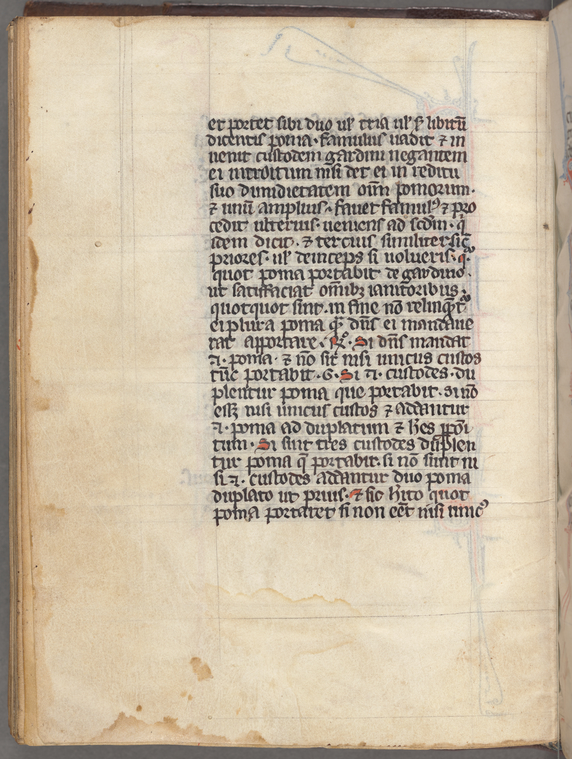 et portet sibi duo ul' tria ul' s' libitū
dicentis poma. famulus uadit ⁊ in
uenit custodem gardini negantem
ei introitum nisi det ei in reditu
suo dimidietatem oīm pomorum.
⁊ unū amplius. fauet famul' ⁊ pro
cedit ulterius. ueniens ad scd̄m. q̄
idem dicit. ⁊ tercius similiter sic̄
priores. ul' deinceps si uolueris.
quot poma portabit de gardino.
ut satisfaciat omībȝ ianitoribus
quotquot sint. in fine nō
ei plura poma dn̄s ei mandaue
rat apportare. Si dn̄s mandat
.2. poma. ⁊ nō sit nisi unicus custos
tūc portabit .6. Si .2. custodes. du
plentur poma que portabit. si nō
eēt nisi unicus custos ⁊ addantur
.2. poma ad duplatum ⁊ hēs
tum. Si sint tres custodes duplen
tur poma q̄ portabit. si nō sunt ni
si .2. custodes addantur duo poma
duplato ut prius. ⁊ sic hīto quot
poma portaret si non eēt nisi unic'